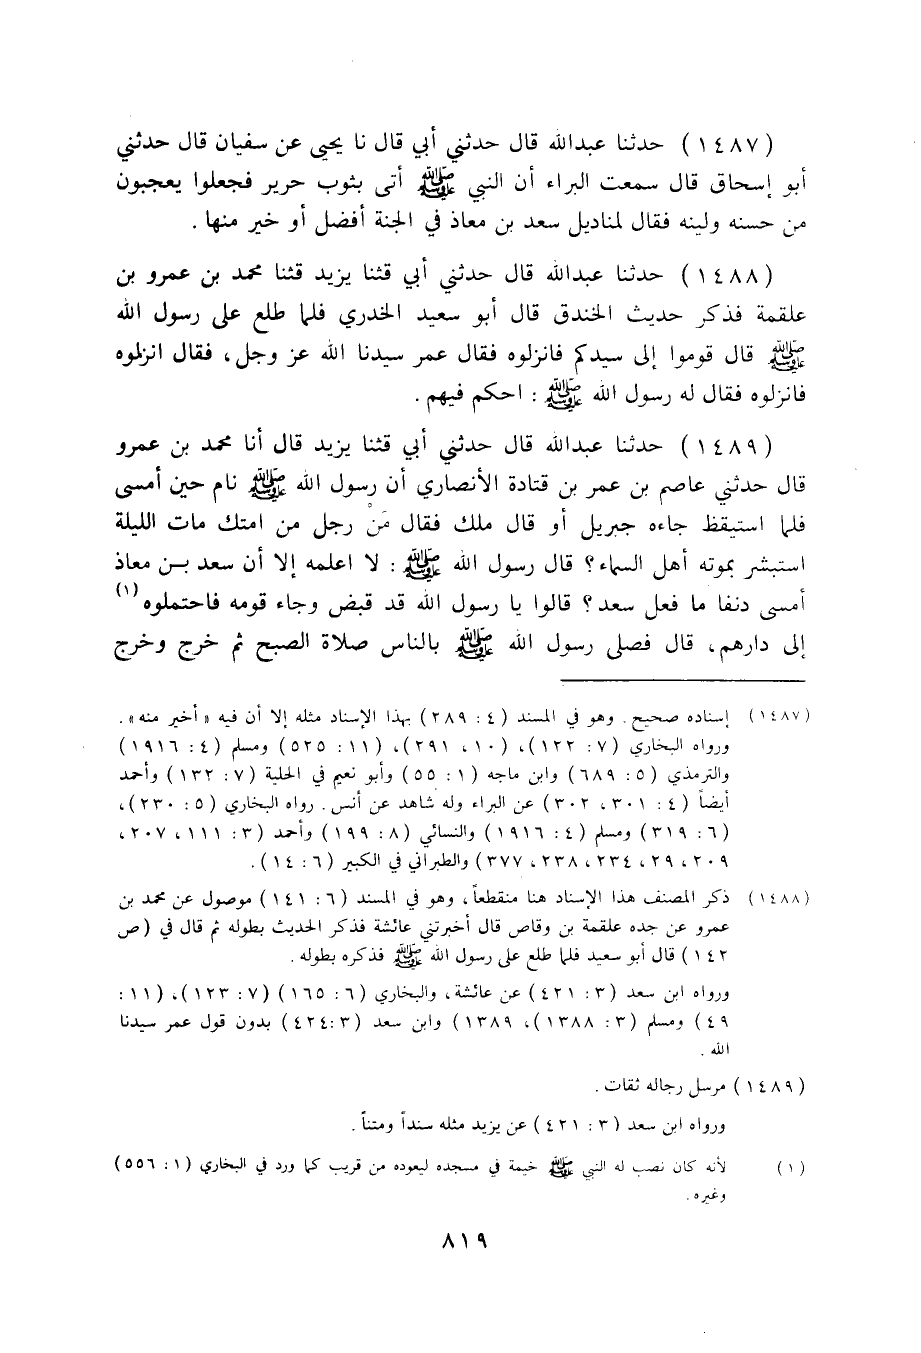 (١٤٨٧) حدثنا عبدالله قال حدثني أبي قال نا يحيى عن سفيان قال حدثني
أبو إسحاق قال سمعت البراء أن النبي ﷺ أتى بثوب حرير فجعلوا يعجبون
من حسنه ولينه فقال لمناديل سعد بن معاذ في الجنة أفضل أو خير منها .
(١٤٨٨) حدثنا عبدالله قال حدثني أبي قثنا يزيد قثنا محمد بن عمرو بن
علقمة فذكر حديث الخندق قال أبو سعيد الخدري فلما طلع على رسول الله
ﷺ قال قوموا إلى سيدكم فانزلوه فقال عمر سيدنا الله عز وجل، فقال انزلوه
فانزلوه فقال له رسول الله ﷺ : احكم فيهم .
(١٤٨٩) حدثنا عبدالله قال حدثني أبي قثنا يزيد قال أنا محمد بن عمرو
قال حدثني عاصم بن عمر بن قتادة الأنصاري أن رسول الله ﷺ نام حين أمسى
فلما استيقظ جاءه جبريل أو قال ملك فقال مَنْ رجل من امتك مات الليلة
استبشر بموته أهل السماء؟ قال رسول الله ﷺ : لا اعلمه إلا أن سعد بـن معاذ
أمسى دنفا ما فعل سعد؟ قالوا يا رسول الله قد قبض وجاء قومه فاحتملوه(١)
إلى دارهم، قال فصلى رسول الله ﷺ بالناس صلاة الصبح ثم خرج وخرج
(١٤٨٧) إسناده صحيح. وهو في المسند (٤: ٢٨٩) بهذا الإسناد مثله إلا أن فيه «أخير منه».
ورواه البخاري (٧: ١٢٢)، (١٠، ٢٩١)، (١١: ٥٢٥) ومسلم (٤: ١٩١٦)
والترمذي (٥: ٦٨٩) وابن ماجه (١: ٥٥) وأبو نعيم في الحلية (٧: ١٣٢) وأحمد
أيضاً (٤: ٣٠١، ٣٠٢) عن البراء وله شاهد عن أنس. رواه البخاري (٥: ٢٣٠)،
(٦: ٣١٩) ومسلم (٤: ١٩١٦) والنسائي (٨: ١٩٩) وأحمد (٣: ١١١، ٢٠٧،
٢٠٩، ٢٩، ٢٣٤، ٢٣٨، ٣٧٧) والطبراني في الكبير (٦: ١٤).
(١٤٨٨) ذكر المصنف هذا الإسناد هنا منقطعاً، وهو في المسند (٦: ١٤١) موصول عن محمد بن
عمرو عن جده علقمة بن وقاص قال أخبرتني عائشة فذكر الحديث بطوله ثم قال في (ص
١٤٢) قال أبو سعيد فلما طلع على رسول الله ﷺ فذكره بطوله .
ورواه ابن سعد (٣: ٤٢١) عن عائشة، والبخاري (٦: ١٦٥) (٧: ١٢٣)، (١١:
٤٩) ومسلم (٣: ١٣٨٨)، ١٣٨٩) وابن سعد (٣:٤٢٤) بدون قول عمر سيدنا
الله .
(١٤٨٩) مرسل رجاله ثقات .
ورواه ابن سعد (٣: ٤٢١) عن يزيد مثله سنداً ومتناً .
(١) لأنه كان نصب له النبي ﷺ خيمة في مسجده ليعوده من قريب كما ورد في البخاري (١: ٥٥٦)
وغيره .
٨١٩